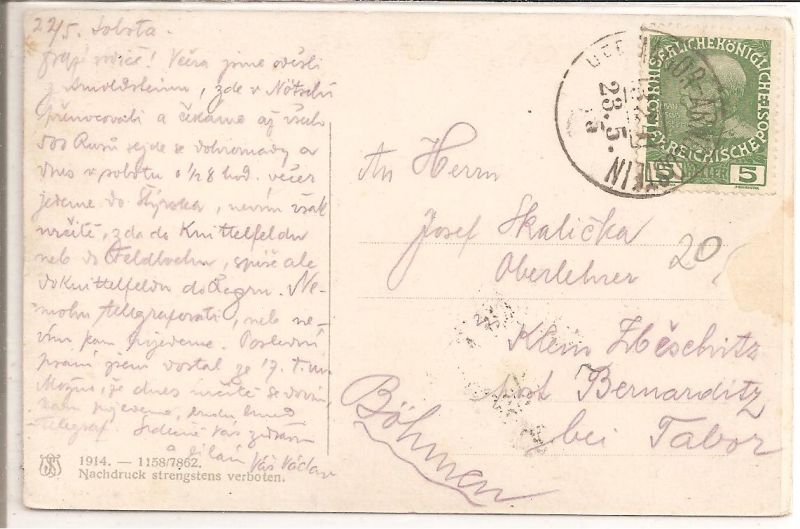 22/5. Sobota.
Včera jsme odešli
z Arnoldsteinu, zde v Nötschu
přenocovali a čekáme až všech
300 Rusů sejde se dohromady a
dnes v sobotu o 1/2 8 hod. večer
jedeme do Štýrska, nevím však
určitě, zda do Knittelfeldu
neb do Feldbachu, spíše ale
do Knittelfeldu do Légru. Ne-
mohu telegrafovati, neb ne-
vím kam přijedeme. Poslední
psaní jsem dostal ze 17. t. m.
Možno, že dnes určitě se dovím,
kam přijedeme,
telegraf. Srdečně Vás zdravím
a líbám Váš Václav
1914. — 1158/7862.
Nachdruck strengstens verboten.
KAISERLICHE KÖNIGLICHE
ÖSTERREICHISCHE POST
5 HELLER 5
23.5.
An Herrn
Josef Skalička
Oberlehrer
20
Klein
Post Bernarditz
bei Tabor
Böhmen